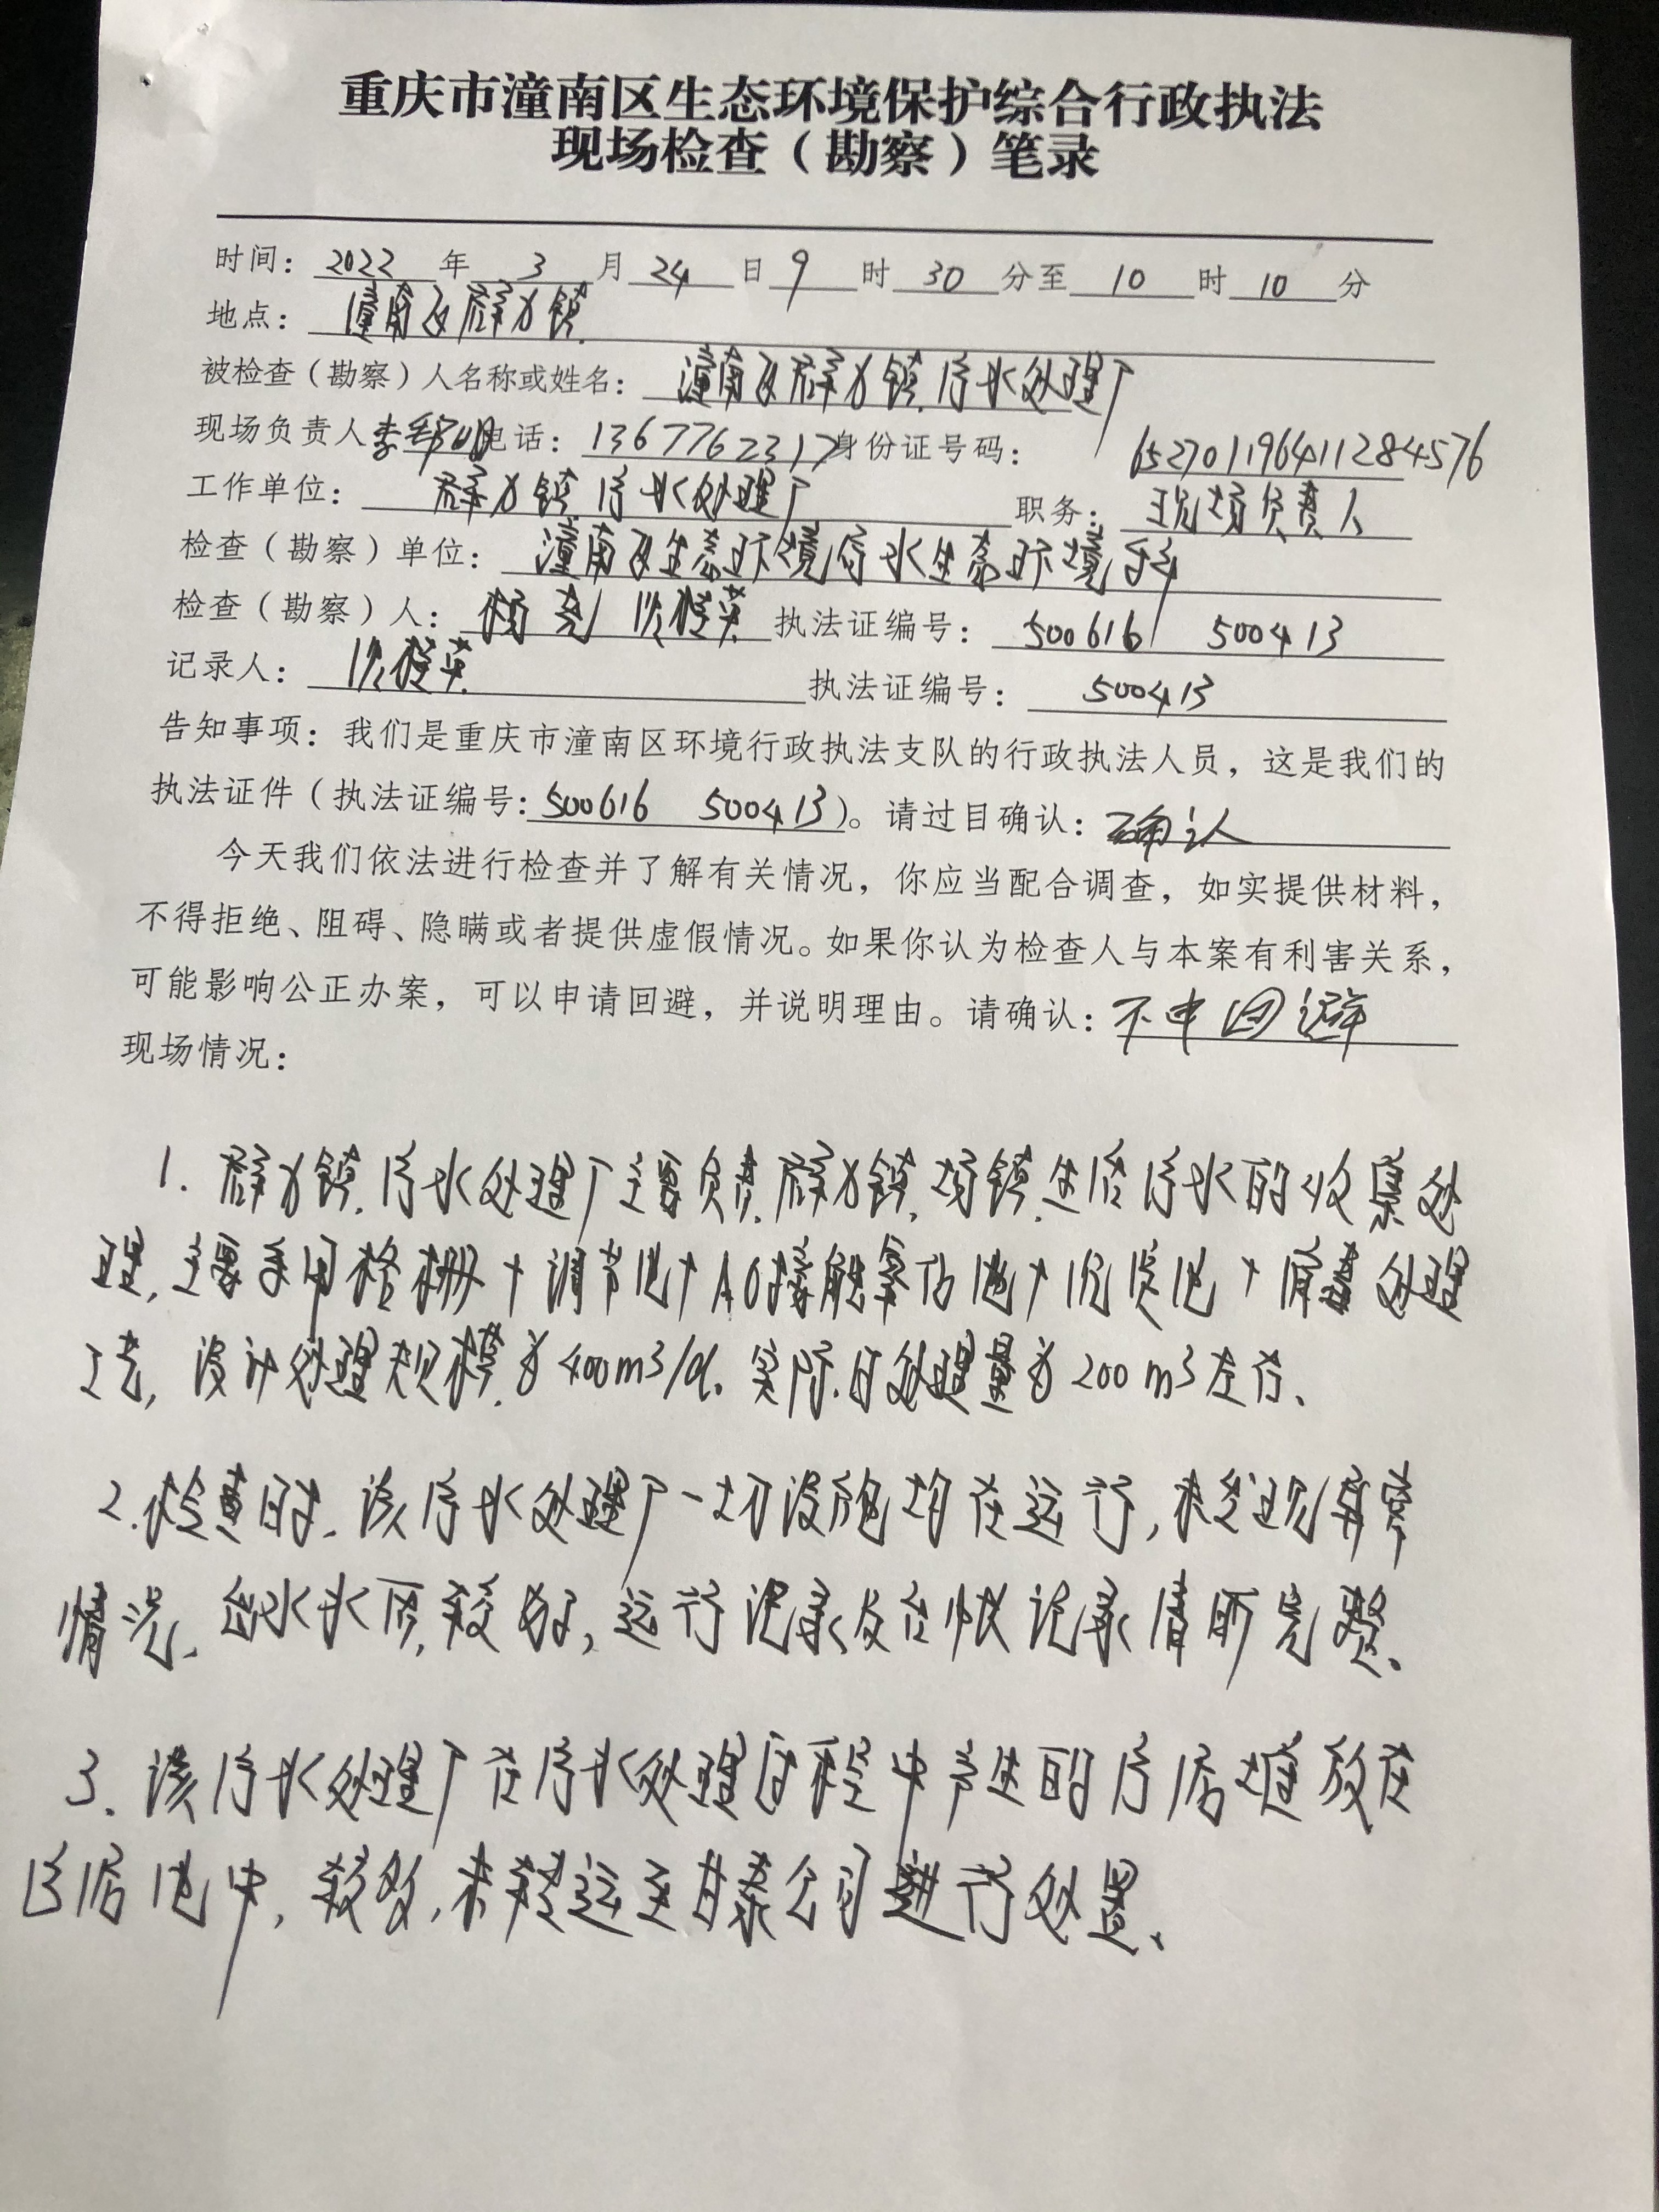 重庆市潼南区生态环境保护综合行政执法
现场检查（勘察）笔录
时间：2022年3月24日9时30分至10时10分
地点：潼南区群力镇
被检查（勘察）人名称或姓名：潼南区群力镇污水处理厂
现场负责人 李 明 电话：13677762317 身份证号码：652701196411284576
工作单位：群力镇污水处理厂 职务：现场负责人
检查（勘察）单位：潼南区生态环境局水生态环境科
检查（勘察）人：杨 英 执法证编号：500616 500413
记录人：英 执法证编号：500413
告知事项：我们是重庆市潼南区环境行政执法支队的行政执法人员，这是我们的
执法证件（执法证编号：500616 500413）。请过目确认：确认
今天我们依法进行检查并了解有关情况，你应当配合调查，如实提供材料，
不得拒绝、阻碍、隐瞒或者提供虚假情况。如果你认为检查人与本案有利害关系，
可能影响公正办案，可以申请回避，并说明理由。请确认：不申回避
现场情况：
1. 群力镇污水处理厂主要负责群力镇场镇生活污水的收集处
理，主要采用格栅+调节池+AO接触氧化池+沉淀池+消毒处理
工艺，设计处理规模为400m3/d。实际日处理量为200m3左右、
2. 检查时、该污水处理厂一切设施均在运行，未发现异常
情况、出水水质较好，运行记录及台帐记录清晰完整。
3. 该污水处理厂在污水处理过程中产生的污泥堆放在
污泥池中，较多，未转运至甘泰公司进行处置、